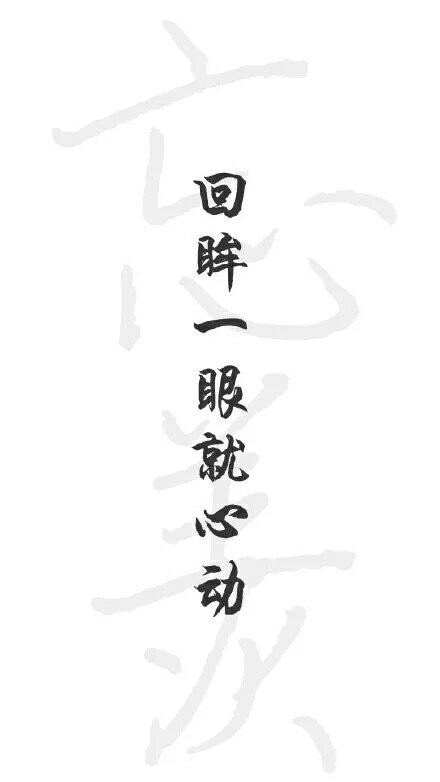 回眸一眼就心动
忘羡